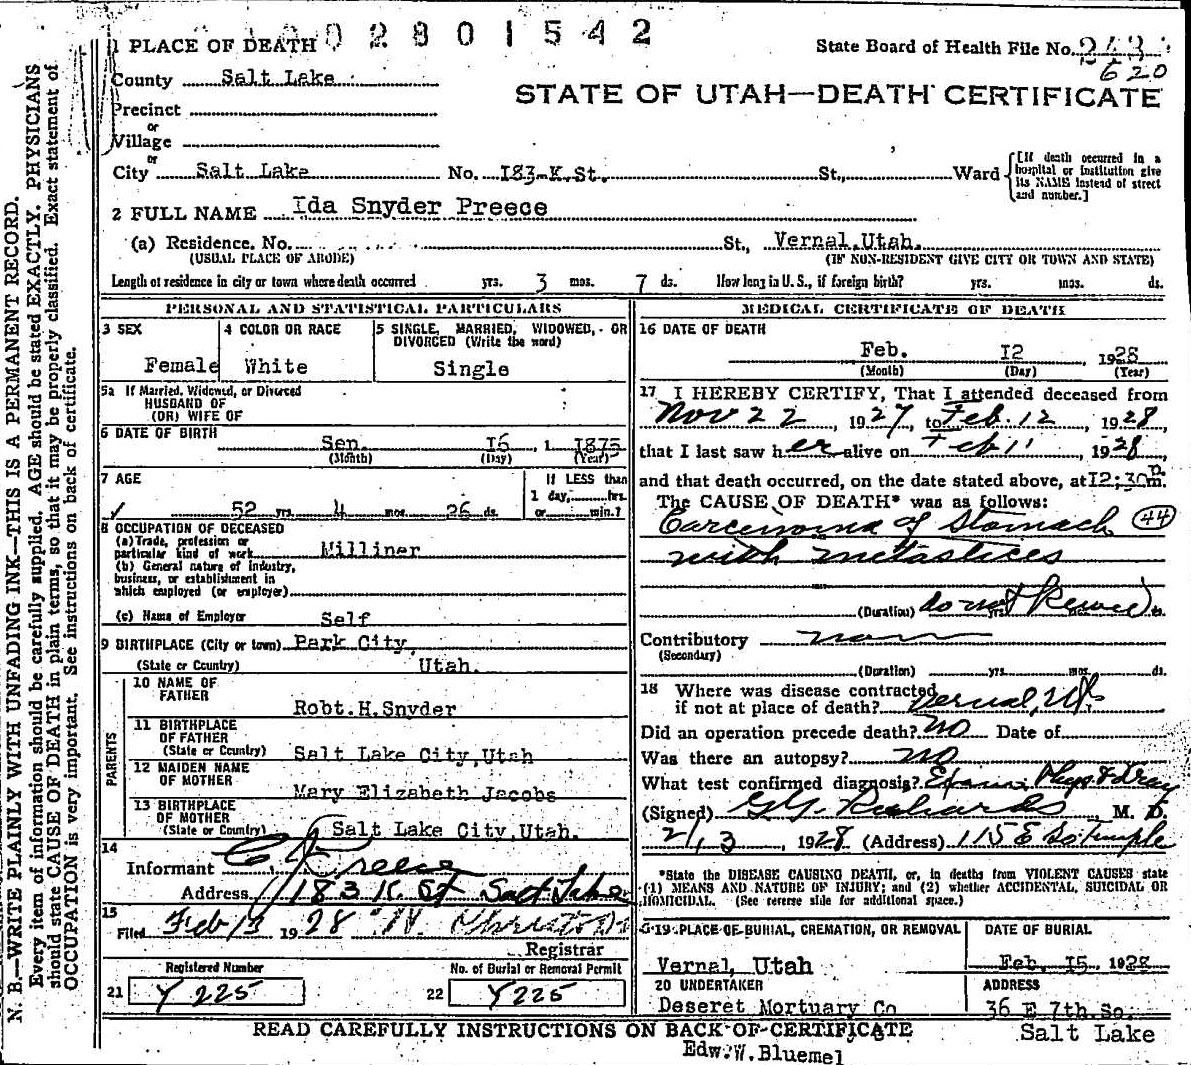 0 2 8 0 1 5 4 2
1 PLACE OF DEATH
State Board of Health File No. 243
620
County Salt Lake
STATE OF UTAH—DEATH CERTIFICATE
Precinct
or
Village
or
City Salt Lake No. 183-K.St. St., Ward
[If death occurred in a hospital or institution give its NAME instead of street and number.]
2 FULL NAME Ida Snyder Preece
(a) Residence. No. St., Vernal, Utah.
(USUAL PLACE OF ABODE) (IF NON-RESIDENT GIVE CITY OR TOWN AND STATE)
Length of residence in city or town where death occurred yrs. 3 mos. 7 ds. How long in U. S., if foreign birth? yrs. mos. ds.
PERSONAL AND STATISTICAL PARTICULARS
3 SEX
Female
4 COLOR OR RACE
White
5 SINGLE, MARRIED, WIDOWED, OR DIVORCED (Write the word)
Single
5a If Married, Widowed, or Divorced
HUSBAND OF
(OR) WIFE OF
6 DATE OF BIRTH
Sep. 16 1 1875
(Month) (Day) (Year)
7 AGE
52 yrs. 4 mos. 26 ds.
If LESS than
1 day, hrs.
or min.?
8 OCCUPATION OF DECEASED
(a) Trade, profession or
particular kind of work Milliner
(b) General nature of industry,
business, or establishment in
which employed (or employer)
(c) Name of Employer Self
9 BIRTHPLACE (City or town) Park City,
(State or Country) Utah.
PARENTS
10 NAME OF
FATHER
Robt. H. Snyder
11 BIRTHPLACE
OF FATHER
(State or Country) Salt Lake City, Utah
12 MAIDEN NAME
OF MOTHER
Mary Elizabeth Jacobs
13 BIRTHPLACE
OF MOTHER
(State or Country) Salt Lake City, Utah.
14
Informant Preece
Address 183 K. St Salt Lake
15
Filed Feb 13 1928
Registrar
Registered Number
21 Y 225
No. of Burial or Removal Permit
22 Y 225
MEDICAL CERTIFICATE OF DEATH
16 DATE OF DEATH
Feb. 12 , 1928
(Month) (Day) (Year)
17 I HEREBY CERTIFY, That I attended deceased from
Nov 22 , 1927, to Feb. 12 , 1928,
that I last saw her alive on Feb 11 , 1928,
and that death occurred, on the date stated above, at 12:30 P m.
The CAUSE OF DEATH* was as follows:
Carcinoma of Stomach 44
with metastices
(Duration) do not know yrs. ds.
Contributory none
(Secondary)
(Duration) yrs. mos. ds.
18 Where was disease contracted
if not at place of death? Vernal, Ut
Did an operation precede death? no Date of
Was there an autopsy? no
What test confirmed diagnosis? Exam. Phys & Xray
(Signed) G.G. Richards M. D.
2/13 , 1928 (Address) 115 E So Temple
*State the DISEASE CAUSING DEATH, or, in deaths from VIOLENT CAUSES state
(1) MEANS AND NATURE OF INJURY; and (2) whether ACCIDENTAL, SUICIDAL OR
HOMICIDAL. (See reverse side for additional space.)
19 PLACE OF BURIAL, CREMATION, OR REMOVAL
Vernal, Utah
DATE OF BURIAL
Feb. 15 , 1928
20 UNDERTAKER
Deseret Mortuary Co
ADDRESS
36 E 7th So.
Salt Lake
READ CAREFULLY INSTRUCTIONS ON BACK OF CERTIFICATE
Edw. W. Bluemel
N. B.—WRITE PLAINLY WITH UNFADING INK—THIS IS A PERMANENT RECORD.
Every item of information should be carefully supplied. AGE should be stated EXACTLY. PHYSICIANS
should state CAUSE OF DEATH in plain terms, so that it may be properly classified. Exact statement of
OCCUPATION is very important. See instructions on back of certificate.